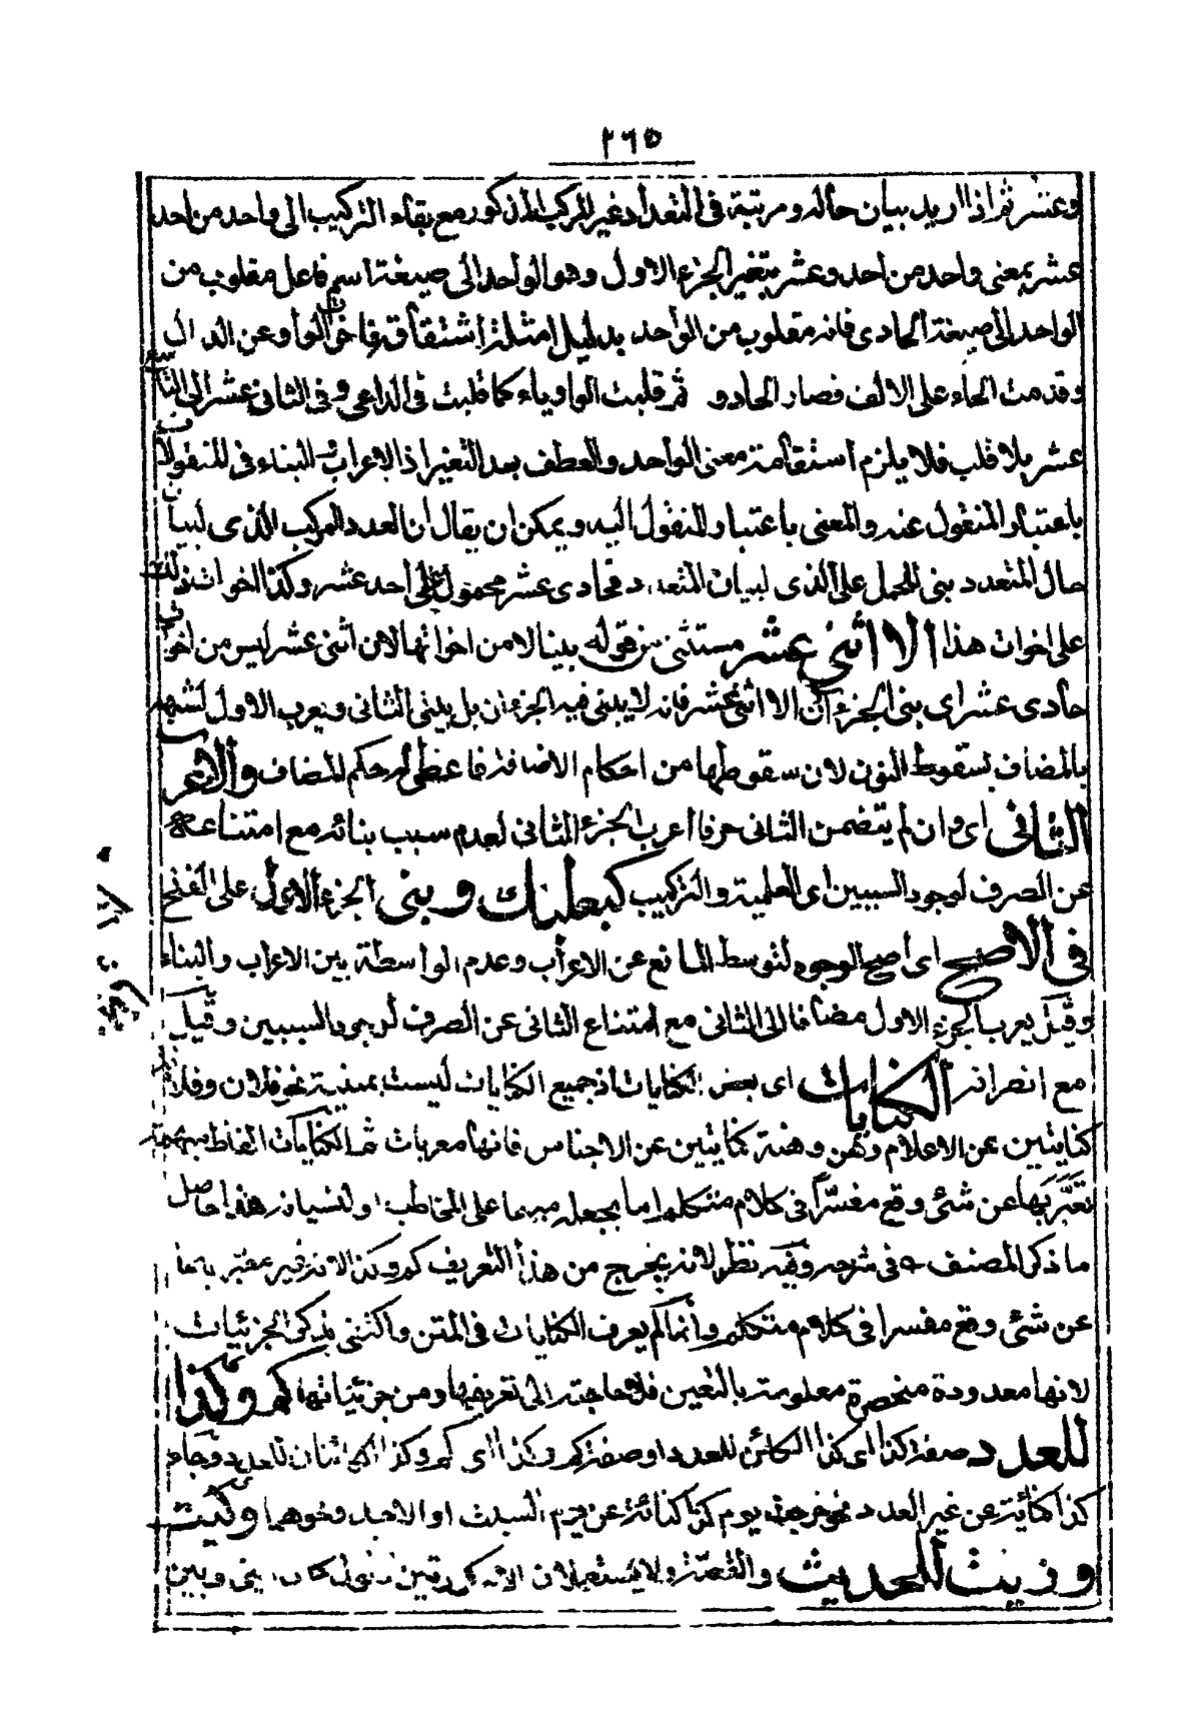 ٢٦٥
وعشر ثم اذا اريد بيان حاله ومرتبته فى التعداد غير المركب المذكور مع بقاء التركيب الى واحد من احد
عشر بمعنى واحد من احد وعشر بتغير الجزء الاول وهو الواحد الى صيغة اسم فاعل مقلوب من
الواحد الى صيغة الحادى فانه مقلوب من الواحد بدليل امثلة اشتقاقه فاخر الواو عن الدال
وقدمت الحاء على الالف فصار الحادو ثم قلبت الواو ياء كما قلبت فى الداعى وفى الثانى عشر الى التاسع
عشر بلا قلب فلا يلزم استقامة معنى الواحد والعطف بعد التغير اذ الاعراب والبناء فى المنقولات
باعتبار المنقول عنه والمعنى باعتبار المنقول اليه ويمكن ان يقال ان العدد المركب الذى لبيان
حال المتعدد بنى للحمل على الذى لبيان المتعدد فحادى عشر محمول على احد عشر وكذا اخواته
على اخوات هذا الا اثنى عشر مستثنى من قوله بينا لا من اخواتها لان اثنى عشر ليس من اخوات
حادى عشر اى بنى الجزء ان الا اثنى عشر فانه لا يبنى فيه الجزءان بل يبنى الثانى ويعرب الاول لشبهه
بالمضاف بسقوط النون لان سقوطها من احكام الاضافة فاعطى له حكم المضاف والا اعرب
الثانى اى وان لم يتضمن الثانى حرفا اعرب الجزء الثانى لعدم سبب بنائه مع امتناعه
عن الصرف لوجود السببين اى العلمية والتركيب كبعلبك وبنى الجزء الاول على الفتح
فى الاصح اى اصح الوجوه لتوسط المانع عن الاعراب وعدم الواسطة بين الاعراب والبناء
وقيل يعرب الجزء الاول مضافا الى الثانى مع امتناع الثانى عن الصرف لوجود السببين وقيل
مع انصرافه الكنايات اى بعض الكنايات اذ جميع الكنايات ليست بمبنية نحو فلان وفلانة
كنايتين عن الاعلام وهن وهنة كنايتين عن الاجناس فانها معربات ثم الكنايات الفاظ مبهمة
تعبر بها عن شئ وقع مفسرا فى كلام متكلم اما بجعله مبهما على المخاطب او لنسيانه هذا حاصل
ما ذكر المصنف فى شرحه وفيه نظر لانه يخرج من هذا التعريف كم وكذا لانه غير معبر بهما
عن شئ وقع مفسرا فى كلام متكلم وانما لم يعرف الكنايات فى المتن واكتفى بذكر الجزئيات
لانها معدودة منحصرة معلومة بالتعين فلا حاجة الى تعريفها ومن جزئياتها كم وكذا
للعدد صفة كذا اى كذا الكائن للعدد او صفة كم وكذا اى كم وكذا الكائنان للعدد وجاء
كذا كناية عن غير العدد نحو خرجت يوم كذا كناية عن يوم السبت او الاحد ونحوهما وكيت
وذيت للحديث والقصة ولا يستعملان الا مكررتين